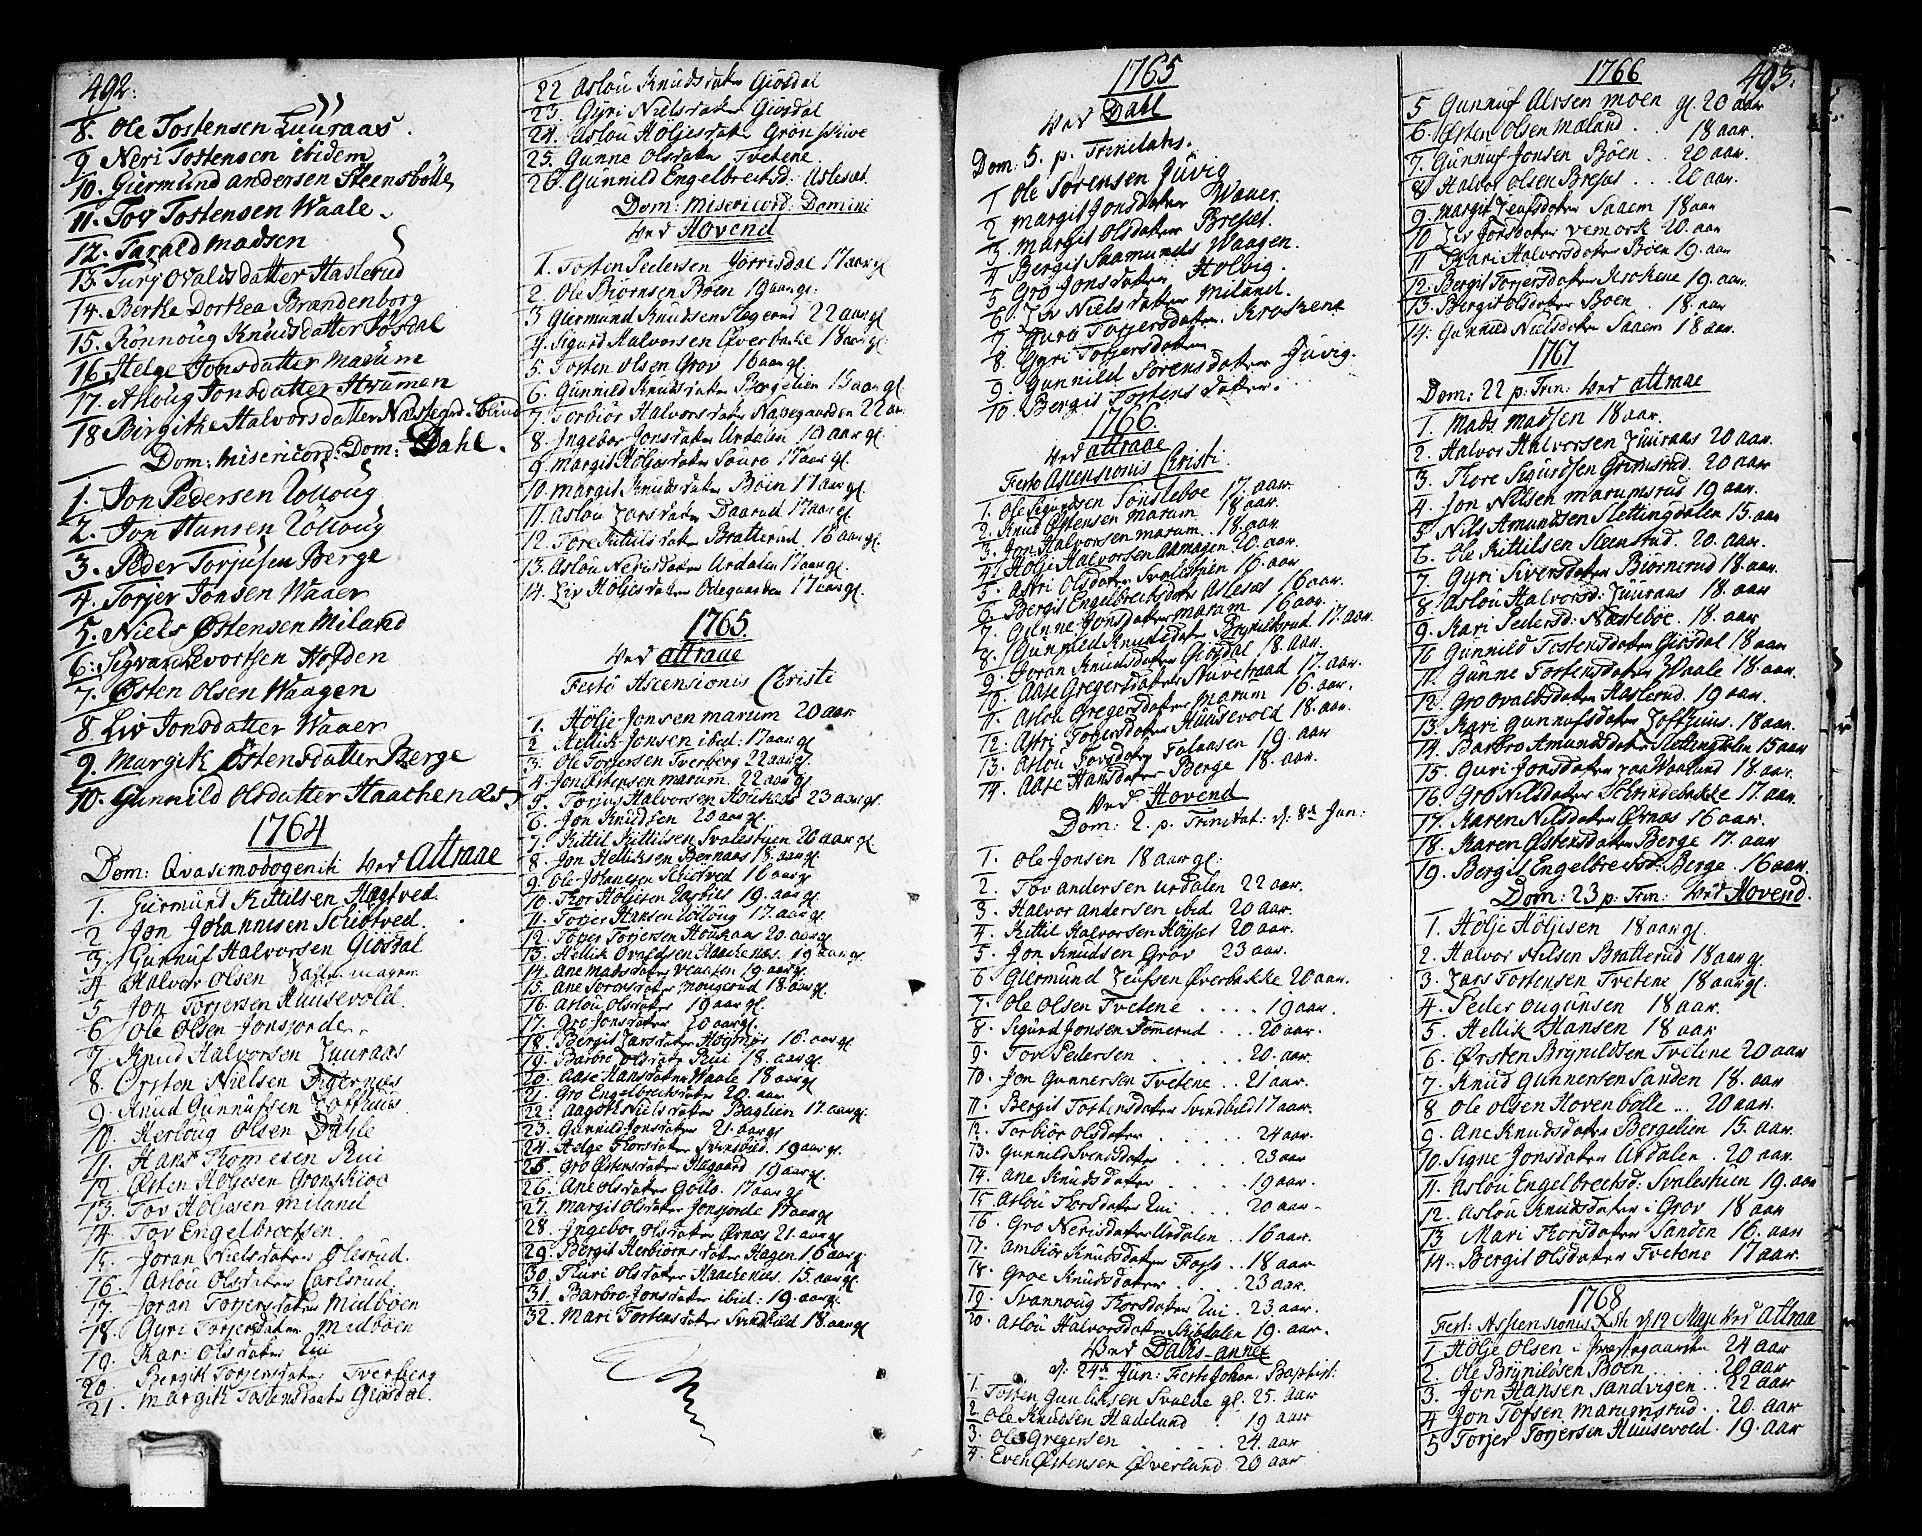 492.
8. Ole Tostensen Luuraas.
9 Neri Tostensen ibidem
10. Giermund andersen Steensbölle
11. Tov Tostensen Waale.
12. Tarald Madsen
13. Turj Ovaldsdatter Haslerud
14. Berthe Dorthea Brandenborg
15. Rönnoug Knudsdatter Jösdal
16. Helge Jonsdatter Marum
17. Asloug Jonsdatter
18 Bergithe Halvorsdatter
Dom: Misericord: Dom: Dahl.
1. Jon Pedersen Lölloug
2. Jon Hansen Lölloug
3. Peder Torjusen Berge
4. Torjer Jonsen Waaer
5. Niels Østensen Miland
6. Evortsen
7. Østen Olsen Waagen
8 Liv Jonsdatter Waaer
9. Margith Östensdatter Berge
10. Gunnild Olsdatter Haachenæs
1764
Dom: Qvasimodogeniti ved Attraae
1. Giermund Kittilsen
2 Jon Johannisen Schiotved
3. Gunnuf Halvorsen Giösdal
4 Halvor Olsen
5 Jon Torjersen Huusevold
6 Ole Olsen Jonsjorde
7 Knud Halvorsen Luuraas
8. Orsten Nielsen
9 Knud Gunnufsen Loffhuus
10. Herloug Olsen Dahle
11. Hans Thomesen Rui
12 Østen Höljesen Gronskioe
13. Tov Höljesen Miland
14 Tov Engelbrectsen
15. Joran Nielsdater Olesrud.
16. Aslou Olsdater Carlsrud.
17. Joran Torjersdater Midböen
18. Gyri Torjersdater Midböen
19. Kari Olsdater Lui
20. Bergith Torjersdater Tverberg
21. Margith Tostensdater Giösdal.
22 Aslou Knudsdater Giösdal
23. Gyri Nielsdater Giösdal
24. Aslou Höljesdater Gronskiive
25. Gunne Olsdater Tvetene.
26 Gunnild Engelbrectsd: Aslesæt
Dom: Misericord: Domini
ved Hovend
1. Tosten Pedersen Jörrisdal 17 aar gl
2. Ole Biörnsen Böen 19 aar gl.
3 Giermund Knudsen Slagerud 22 aar gl
4. Sigurd Halvorsen Øverbakke 18 aar gl
5. Tosten Olsen Grov 16 aar gl
6. Gunnild Knudsdater Bergelien 15 aar gl
7. Torbiör Halvorsdater Næsegaarden 22 aar
8. Ingebor Jonsdater Urdalen 19 aar gl.
9. Margit Höljesdater Sauro 17 aar gl.
10. Margit Knudsdater Böen 17 aar gl
11. Aslou Larsdater Daarud 17 aar gl
12. Tore Kittilsdater Bratterud 16 aar gl.
13. Aslou Nerisdater Urdalen 17 aar gl.
14. Liv Höljesdater Ødegaarden 17 aar gl.
1765
Ved Attraae
Festo Ascensionis Christi
1. Hölje Jonsen Marum 20 aar
2 Hellik Jonsen ibid: 17 aar gl
3. Ole Torjersen Tverberg 22 aar gl.
4. Jon Østensen Marum. 22 aar gl
5. Torjus Halvorsen Houkaas 23 aar gl.
6. Jon Knudsen 20 aar gl
7. Kittil Kittilsen Svalestuen 20 aar gl
8. Jon Helliksen Bernaas 18. aar gl.
9. Ole Johannesen Schiotved 16 aar gl
10. Thor Höljesen 19. aar gl
11. Torjer Hansen Lölloug 17. aar gl.
12. Torjer Torjersen Houkaas 20. aar gl
13. Hellik Ovaldsen Haachenæs. 19 aar gl
14. Ane Madsdater 19. aar gl
15. Ane Sörensdater Mougerud 18. aar gl
16. Aslou Olsdater 19 aar gl.
17. Gro Jonsdater 20 aar gl.
18. Bergit Larsdater 16. aar gl
19. Barbro Olsdater Rui 18. aar gl.
20. Aase Hansdater Waale 18 aar gl
21. Gro Engelbrecktsdater 20 aar
22. Aagoth Nielsdater Baglien 17. aar gl.
23. Gunnild Jonsdater 21. aar gl
24. Helge Thorsdater Svindbild 19 aar gl.
25. Gro Østensdater Haugaard 19 aar gl.
26. Ane Olsdater 17 aar gl
27. Margit Olsdater Jonsjorde 17 aar gl
28. Ingebor Olsdater Ørnæs 21. aar gl
29. Bergit Herbiörnsdater Hagen 16 aar gl
30. Thuri Olsdater Haachenæs. 15. aar gl.
31. Barbro Jonsdater ibid: 19. aar gl.
32. Mari Tostensdater Svindbild 18. aar gl
1765
Ved Dahl
Dom: 5. p. Trinitatis.
1 Ole Sörensen Juvig
2 Margit Jonsdater Waaer
3 Margit Olsdater Bresæt.
4 Bergit Saamunds Waagen.
5. Gro Jonsdater Holvig.
6. Liv Nielsdater Miland.
7. Guro Torjersdater. Kroshene
8. Gyri Torjersdater
9. Gunnild Sorensdater Juvig.
10. Bergit Tostensdater.
1766.
Ved Attraae
Festo Ascensionis Christi
1. Ole Sigundsen Sønsteboe 17. aar.
2. Knud Østensen Marum 18. aar.
3. Jon Halvorsen Marum. 18. aar.
4. Hölje Halvorsen 20. aar.
5. Astri Olsdater Svalestuen 16. aar
6. Bergit Engelbrectsdater Aslesæt 16 aar.
7. Gunne Jonsdater Marum 16 aar.
8. Gunnild Knudsdater Brynildsrud. 17. aar.
9. Joran Knudsdater Giösdal 18. aar.
10. Aase Gregersdater 17. aar.
11. Aslou Gregersdater Marum 16. aar.
12. Astri Torjersdater Huusevold 18. aar.
13. Aslou Torsdater 19. aar
14. Aase Hansdater Berge 18. aar.
Ved Hovend
Dom: 2. p. Trinitat: d. 8de Jun:
1. Ole Jonsen 18 aar gl.
2. Tov Andersen Urdalen 22 aar.
3. Halvor Andersen ibid. 20 aar.
4. Kittil Halvorsen 20 aar.
5. Jon Knudsen Grov 23 aar.
6 Giermund Leufsen Øverbakke 20 aar.
7. Ole Olsen Tvetene . . . . 19 aar.
8. Sigurd Jonsen Somerud . . 20 aar.
9. Tov Pedersen . . . . . 20. aar.
10. Jon Gunnersen Tvetene . . 21 aar.
11. Bergit Tostensdater Svindbild 17 aar.
12. Torbiör Olsdater . . . . . 24 aar.
13. Gunnild Svensdater . . . 23 aar
14. Ane Knudsdater . . . . . 19 aar.
15 Aslou Thorsdater Lui . . . . 20 aar.
16. Gro Nerisdater Urdalen . . 16 aar.
17. Ambiör Knudsdater . . 18 aar
18. Groe Knudsdater . . . 23 aar.
19. Svannoug Thorsdater Lui . 23 aar.
20. Aslou Halvorsdater 19. aar.
Ved Dahls-annex
d. 24de Jun: Festo Johan: Baptist:
1. Tosten Gunliksen gl. 25. aar
2. Ole Knudsen Hadelund . . 19 aar
3. Ole Gregersen . . . . . 24. aar
4. Even Østensen Øverland. 20 aar
1766
493.
5 Gunnuf Alvsen Moen gl. 20 aar
6. Østen Olsen Mæland . . . 18 aar.
7. Gunnuf Jonsen Böen . . 20 aar.
8 Halvor Olsen Bresæt . . . 20 aar.
9. Margit Leufsdater Saaem 18 aar
10 Liv Jonsdater Vemork 20. aar
11 Kari Halvorsdater Böen 19. aar
12. Bergit Torjersdater 19. aar.
13. Bergit Olsdater Böen . 18. aar
14. Gunnild Nielsdater Saaem 18 aar.
1767
Dom: 22 p. Trin: Ved Attraae
1. Mads Madsen 18 aar.
2. Halvor Halvorsen Luuraas 20 aar.
3. Thore Sigurdsen Grimsrud. 20 aar
4. Jon Nilsen Marumsrud 19 aar.
5 Nils Amundsen Slettingdalen 15. aar
6. Ole Kittilsen Steensrud. 20. aar.
7. Gyri Siversdater Biörnerud 18. aar.
8. Aslou Halvorsd: Luuraas 18. aar
9. Kari Pedersd: Næsteboe. 18. aar.
10 Gunnild Tostensdater Giösdal 18 aar
11. Gunne Tostensdater Waale 18. aar.
12. Gro Ovaldsdater Haslerud. 19. aar
13. Kari Gunnufsdater Loffhuus. 18 aar.
14. Barbro Amundsdater Slettingdalen 15 aar
15. Guri Jonsdater paa Waalund 18. aar.
16. Gro Nilsdater Schrindebakke 17. aar.
17. Karen Nilsdater Ørnæs 16 aar.
18. Karen Østensdater Berge 17. aar
19. Bergit Engelbrectsd: Berge. 16 aar.
Dom: 23 p. Trin: Ved Hovend.
1. Hölje Höljesen 18 aar gl.
2. Halvor Nilsen Bratterud 18 aar gl
3. Lars Tostensen Tvetene 18 aar gl.
4. Peder Ougunsen 18 aar.
5. Hellik Hansen 18 aar
6. Ørsten Brynildsen Tvetene 20 aar
7. Knud Gunnersen Sanden 18. aar
8 Ole Olsen Hovenbolle . . 20 aar.
9. Ane Knudsdater Bergelien 15. aar.
10. Signe Jonsdater Urdalen . 20 aar.
11. Aslou Engelbrectsd: Svalestuen 19. aar
12. Aslou Knudsdater i Grov 18 aar
13 Mari Thorsdater Sanden 16. aar
14. Bergit Olsdater Tvetene 17 aar.
1768
Fest: Assensionis d. 12 Maji ved Attraa
1 Hölje Olsen i Præstegaarden 24 aar
2. Ole Brynildsen Böen . . . 20 aar
3. Jon Hansen Sandvigen . . 22 aar
4 Jon Tofsen Marumsrud . . 20. aar
5 Torjer Torjersen Huusevold. 19. aar